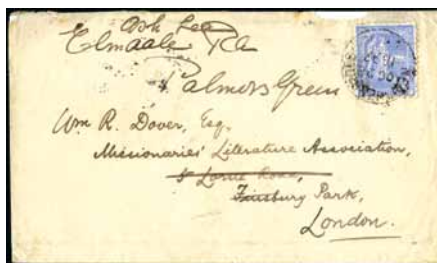 Ash Lea
Elmdale Rd
Palmers Green
Wm R. Dover, Esq.
Missionaries' Literature Association,
Lorne Road,
Finsbury Park,
London.